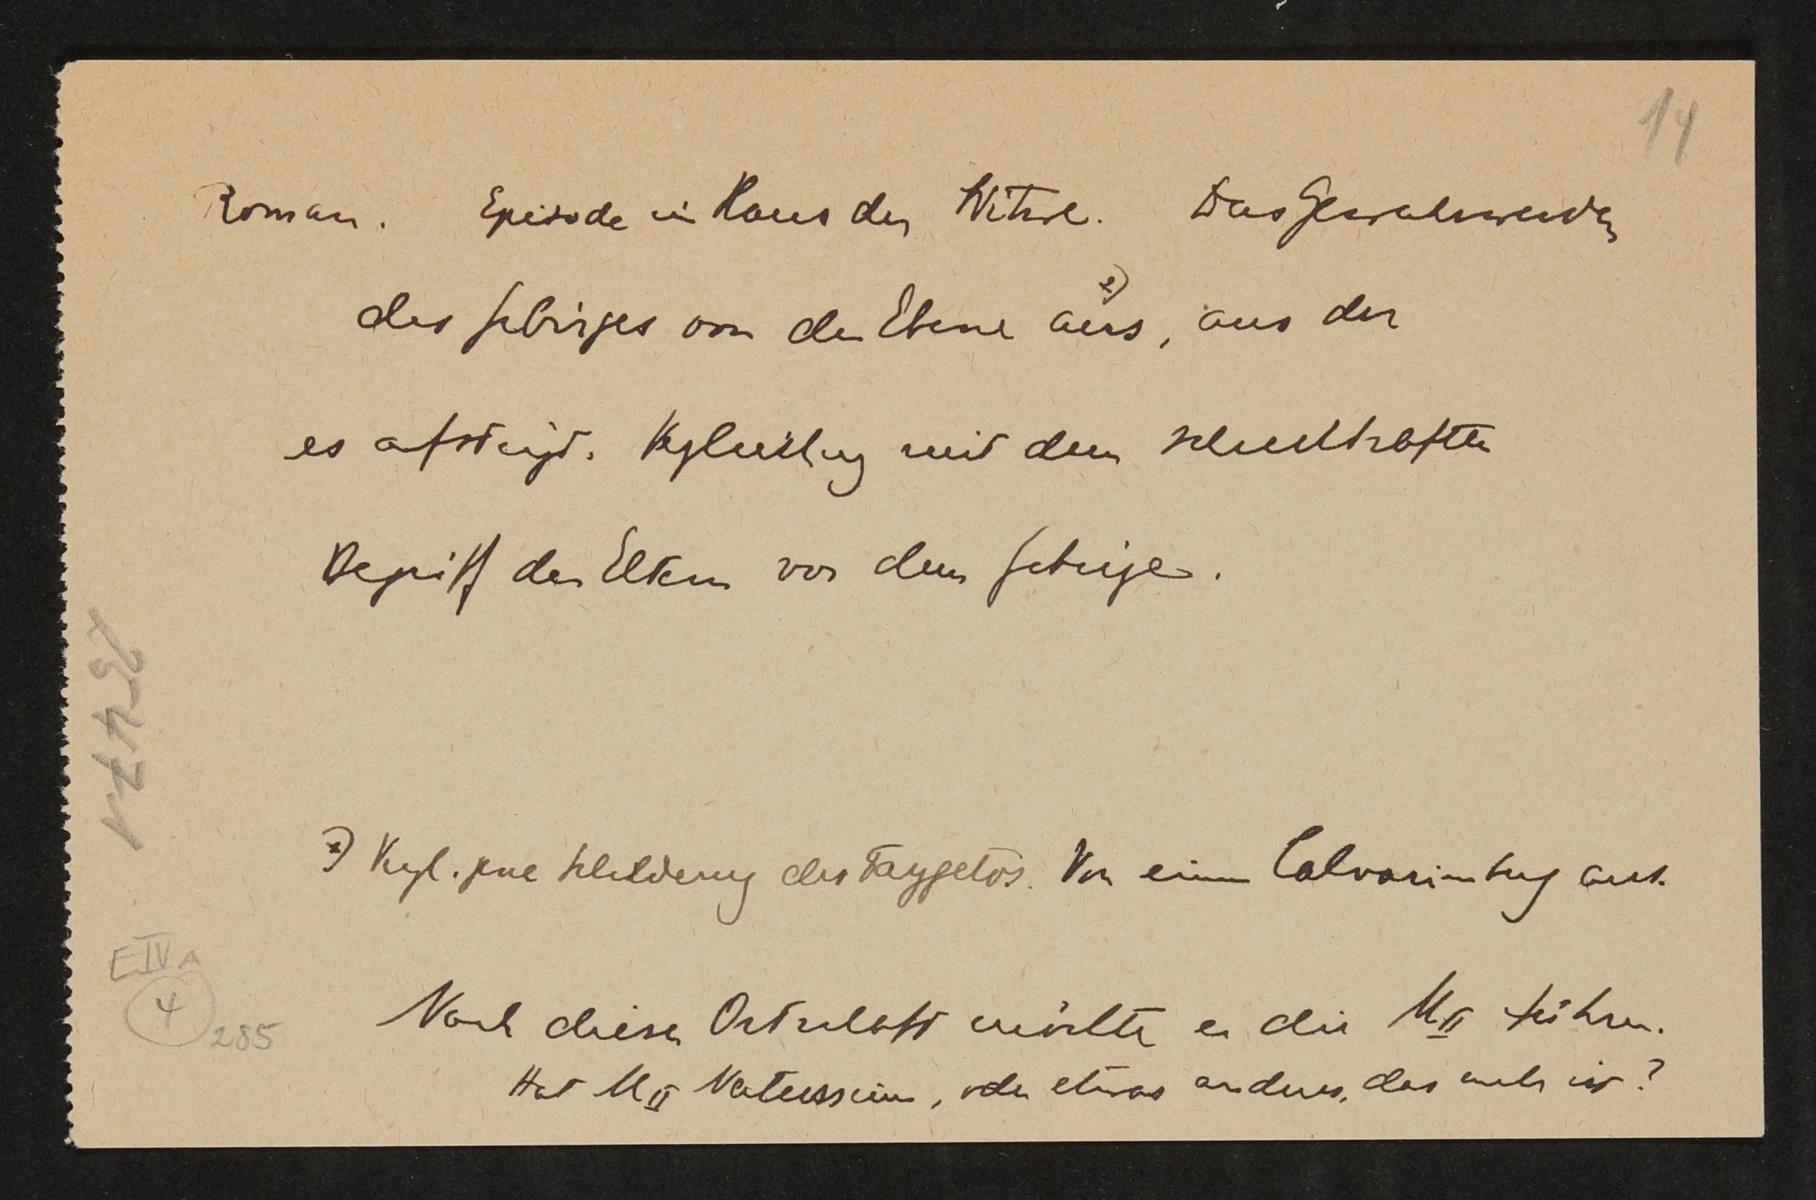 14
Roman. Episode im Haus der Witwe. Das Gewahrwerden
des Gebirges von der Ebene aus *), aus der
es aufsteigt. Vergleichung mit dem schreckhaften
Begriff der Eltern vor dem Gebirge.
*) Vergl. jene Schilderung des Taygetos. Von einem Calvarienberg aus.
Nach dieser Ortschaft möchte er die M II führen.
Hat M II Natursinn, oder etwas anderes, das mehr ist?
E IV A
4
285